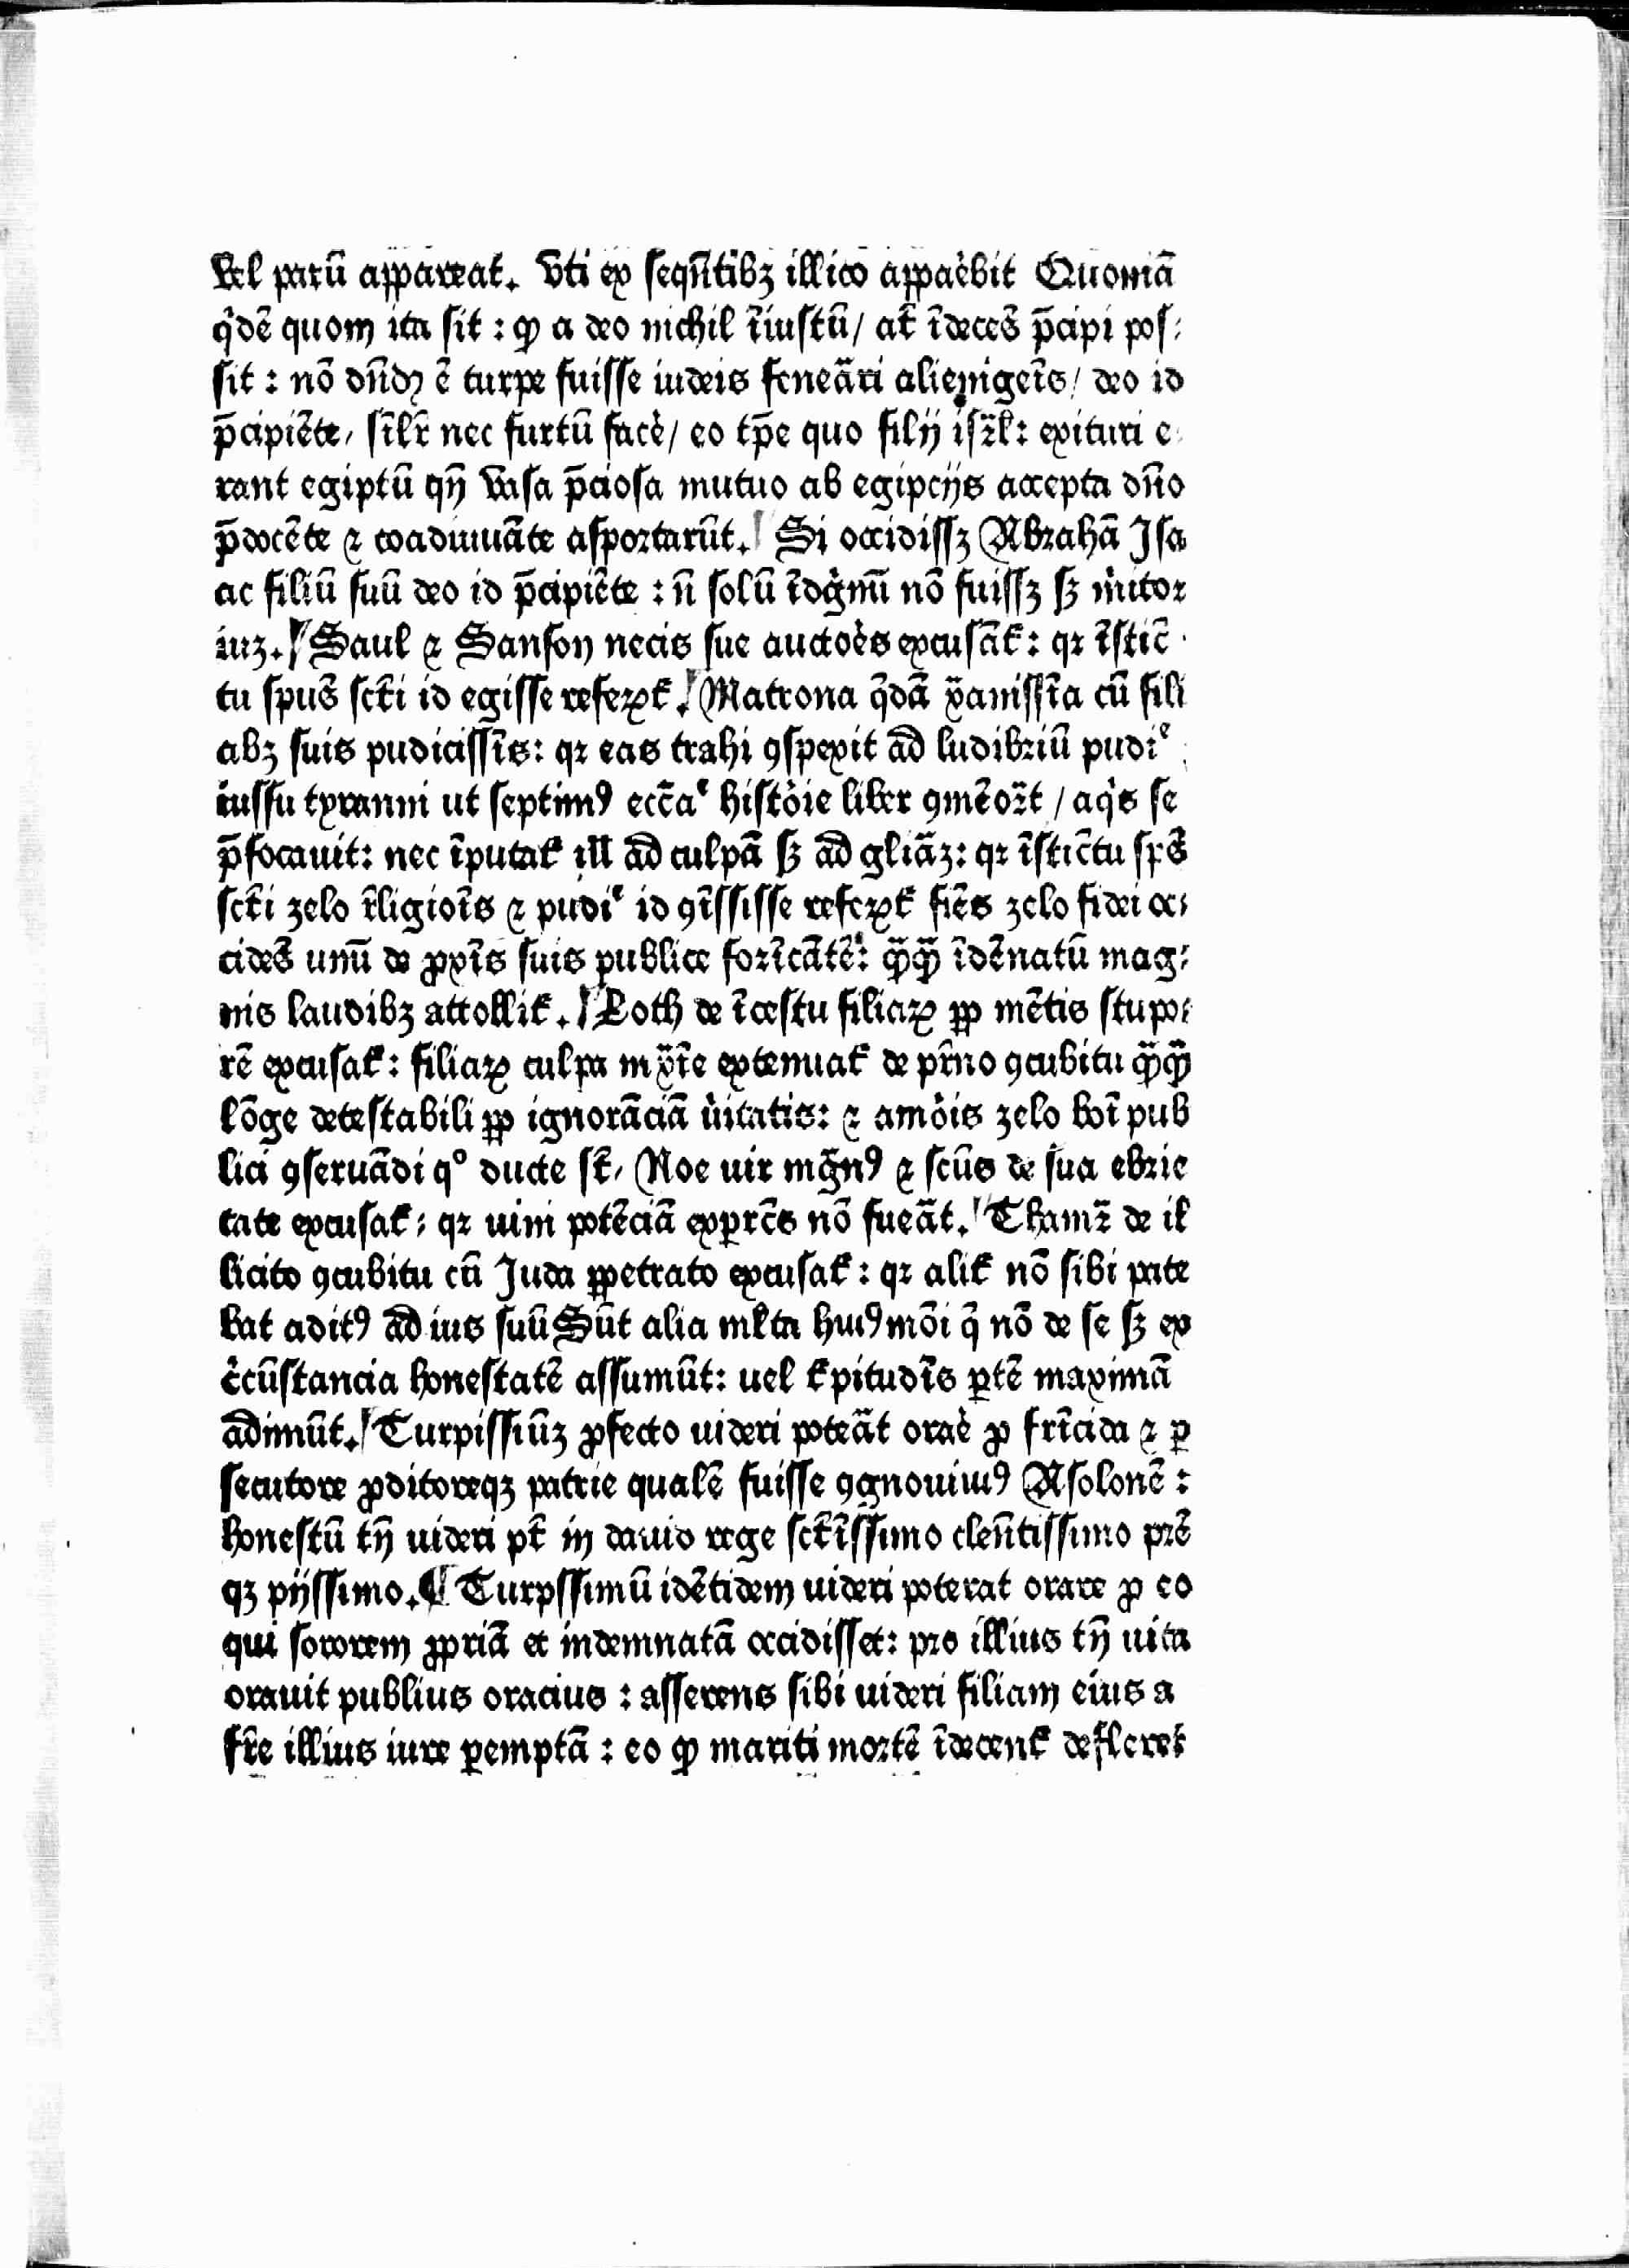 Vel parū appareat. Vti ex seqn̄tibȝ illico appaēbit Quoniā
q̄dē quom ita sit : ꝙ a deo nichil īiustū / at̄ īdecēs p̄cipi pos⸗
sit : nō dn̄dȝ ē turpe fuisse iudeis feneāri alienigeīs / deo id
p̄cipiēte, sīlr̄ nec furtū facē / eo tp̄e quo filij isrl̄: exituri e⸗
rant egiptū qn̄ Vasa p̄ciosa mutuo ab egipcijs accepta dn̄o
p̄docēte ⁊ coadiuuāte asportarūt. Si occidissȝ Abrahā Isa
ac filiū suū deo id p̄cipiēte : n̄ solū īdignū nō fuissȝ sȝ mitor
iuȝ. Saul ⁊ Sanson necis sue auctoēs excusāt̄ : qꝛ īstic⸗
tu spūs sct̄i id egisse referūt̄. Matrona q̄dā xp̄anissīa cū fili
abȝ suis pudicissīs : qꝛ eas trahi ꝯspexit ad ludibriū pudiᵉ
iussu tyranni ut septimꝰ eccāᵉ histoīe liber ꝯmēorāt / aqis se
p̄focauit : nec īputat̄ ill ad culpā sȝ ad gliāȝ : qꝛ īstīctu spūs
sct̄i zelo rēligioīs ⁊ pudiᵉ id ꝯīssisse referūt̄ fiēs zelo fidei oc⸗
cidēs unū de ꝓxīs suis publice forīcātē : qꝙ̄ īdēnatū mag⸗
nis laudibȝ attollit̄. Loth de īcestu filiaꝝ ꝓp mētis stupo⸗
rē excusat̄ : filiaꝝ culpa mxīe extenuat̄ de prīno ꝯcubitu qꝙ̄
lōge detestabili ꝓp ignorāciā ūitatis : ⁊ amoīs zelo boī pub
lici ꝯseruādi qᵒ ducte st̄, Noe uir māgnꝰ ⁊ scūs de sua ebrie
tate excusat̄ : qꝛ uini potēciā exꝑtēs nō fueāt. Thamar̄ de il
licito ꝯcubitu cū Juda ꝑpetrato excusat̄ : qꝛ alit̄ nō sibi pate
bat aditꝰ ad ius suū Sūt alia ml̄ta huiꝰmōi q̄ nō de se sȝ ex
c̄cūstancia honestatē assumūt : uel t̄pitudīs ꝑtē maximā
adimūt. Turpissimūȝ ꝓfecto uideri poteāt oraē ꝓ frīcida ⁊ ꝑ
secutore ꝓditoreqȝ patrie qualē fuisse ꝯgnouimꝰ Absolonē :
honestū tn̄ uideri pt̄ in dauid rege sct̄issimo clemn̄tissimo prē
qȝ pijssimo. ¶ Turpssimū idētidem uideri poterat orare ꝓ eo
qui sororem ꝓpriā et indemnatā occidisset : pro illius tn̄ uita
orauit publius oracius : asserens sibi uideri filiam eius a
fr̄e illius iure ꝑemptā : eo ꝙ mariti mortē īdecent̄ defleret